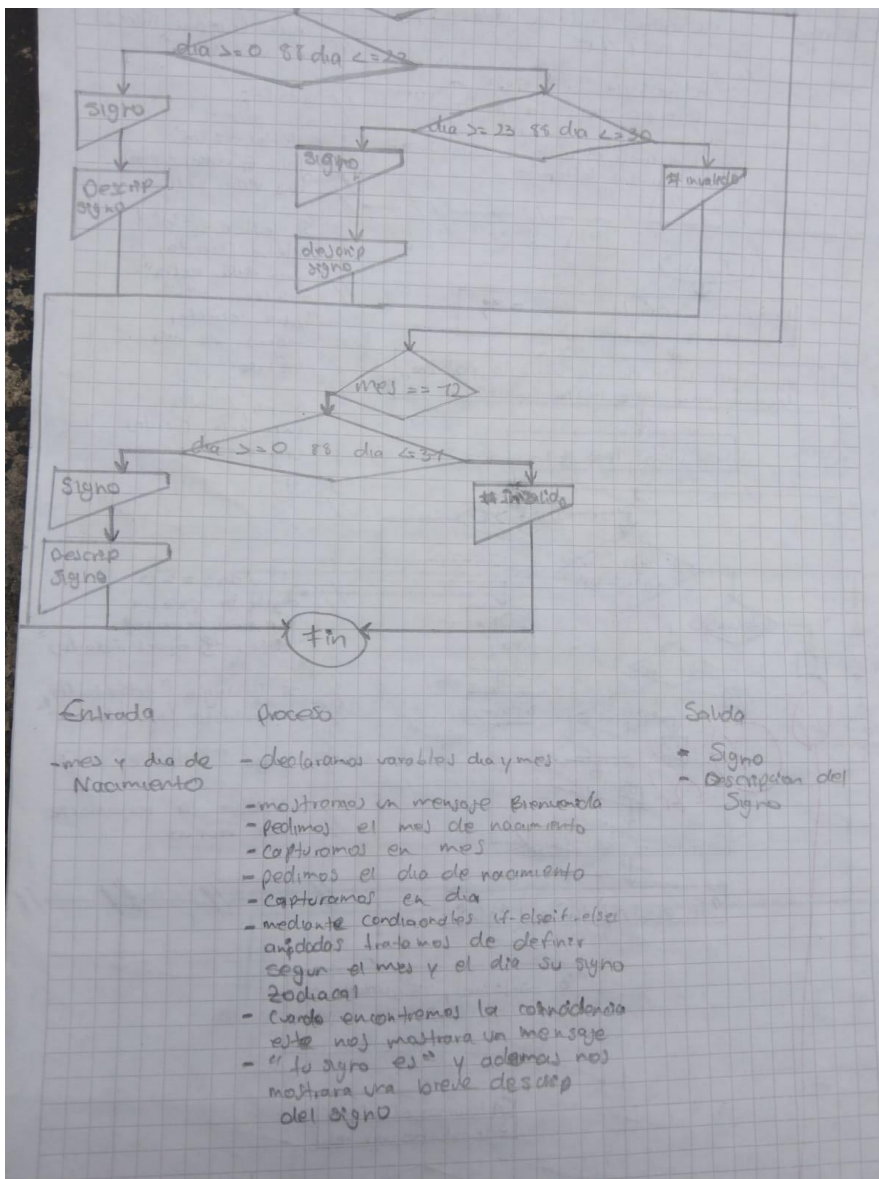 dia >= 0 && dia <= 22
signo
Descrip
signo
dia >= 23 && dia <= 30
signo
descrip
signo
# invalido
mes == 12
dia >= 0 && dia <= 31
Signo
Descrip
Signo
# Invalido
Fin
Entrada
-mes y dia de
Nacimiento
Proceso
- declaramos variables dia y mes
- mostramos un mensaje Bienvenida
- pedimos el mes de nacimiento
- capturamos en mes
- pedimos el dia de nacimiento
- capturamos en dia
- mediante condicionales if-elseif-else
anidadas tratamos de definir
segun el mes y el dia su signo
zodiacal
- cuando encontremos la coincidencia
este nos mostrara un mensaje
- "tu signo es" y ademas nos
mostrara una breve descrip
del signo
Salida
- Signo
- Descripcion del
Signo